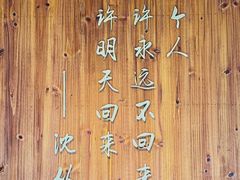 个人
许永远不回来
许明天回来
——沈